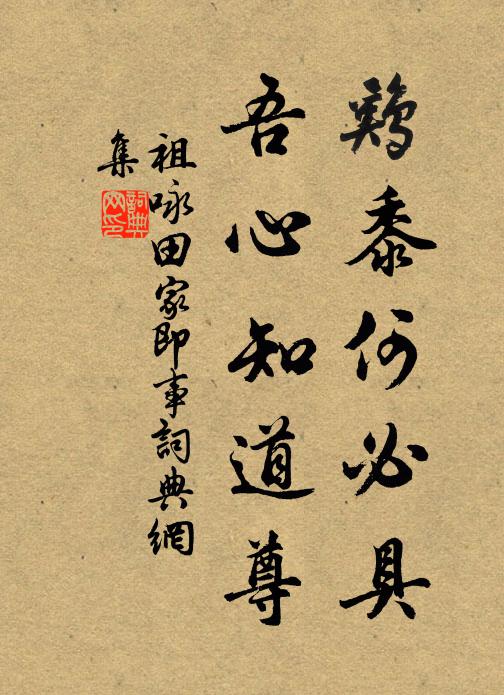 鷄黍何必具
吾心知道尊
祖咏田家即事詞典網
集
詞典
网印